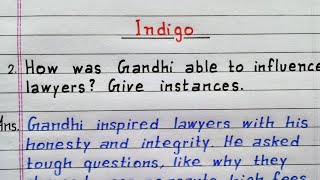 Indigo
2. How was Gandhi able to influence
lawyers? Give instances.
Ans. Gandhi inspired lawyers with his
honesty and integrity. He asked
tough questions, like why they
high fees